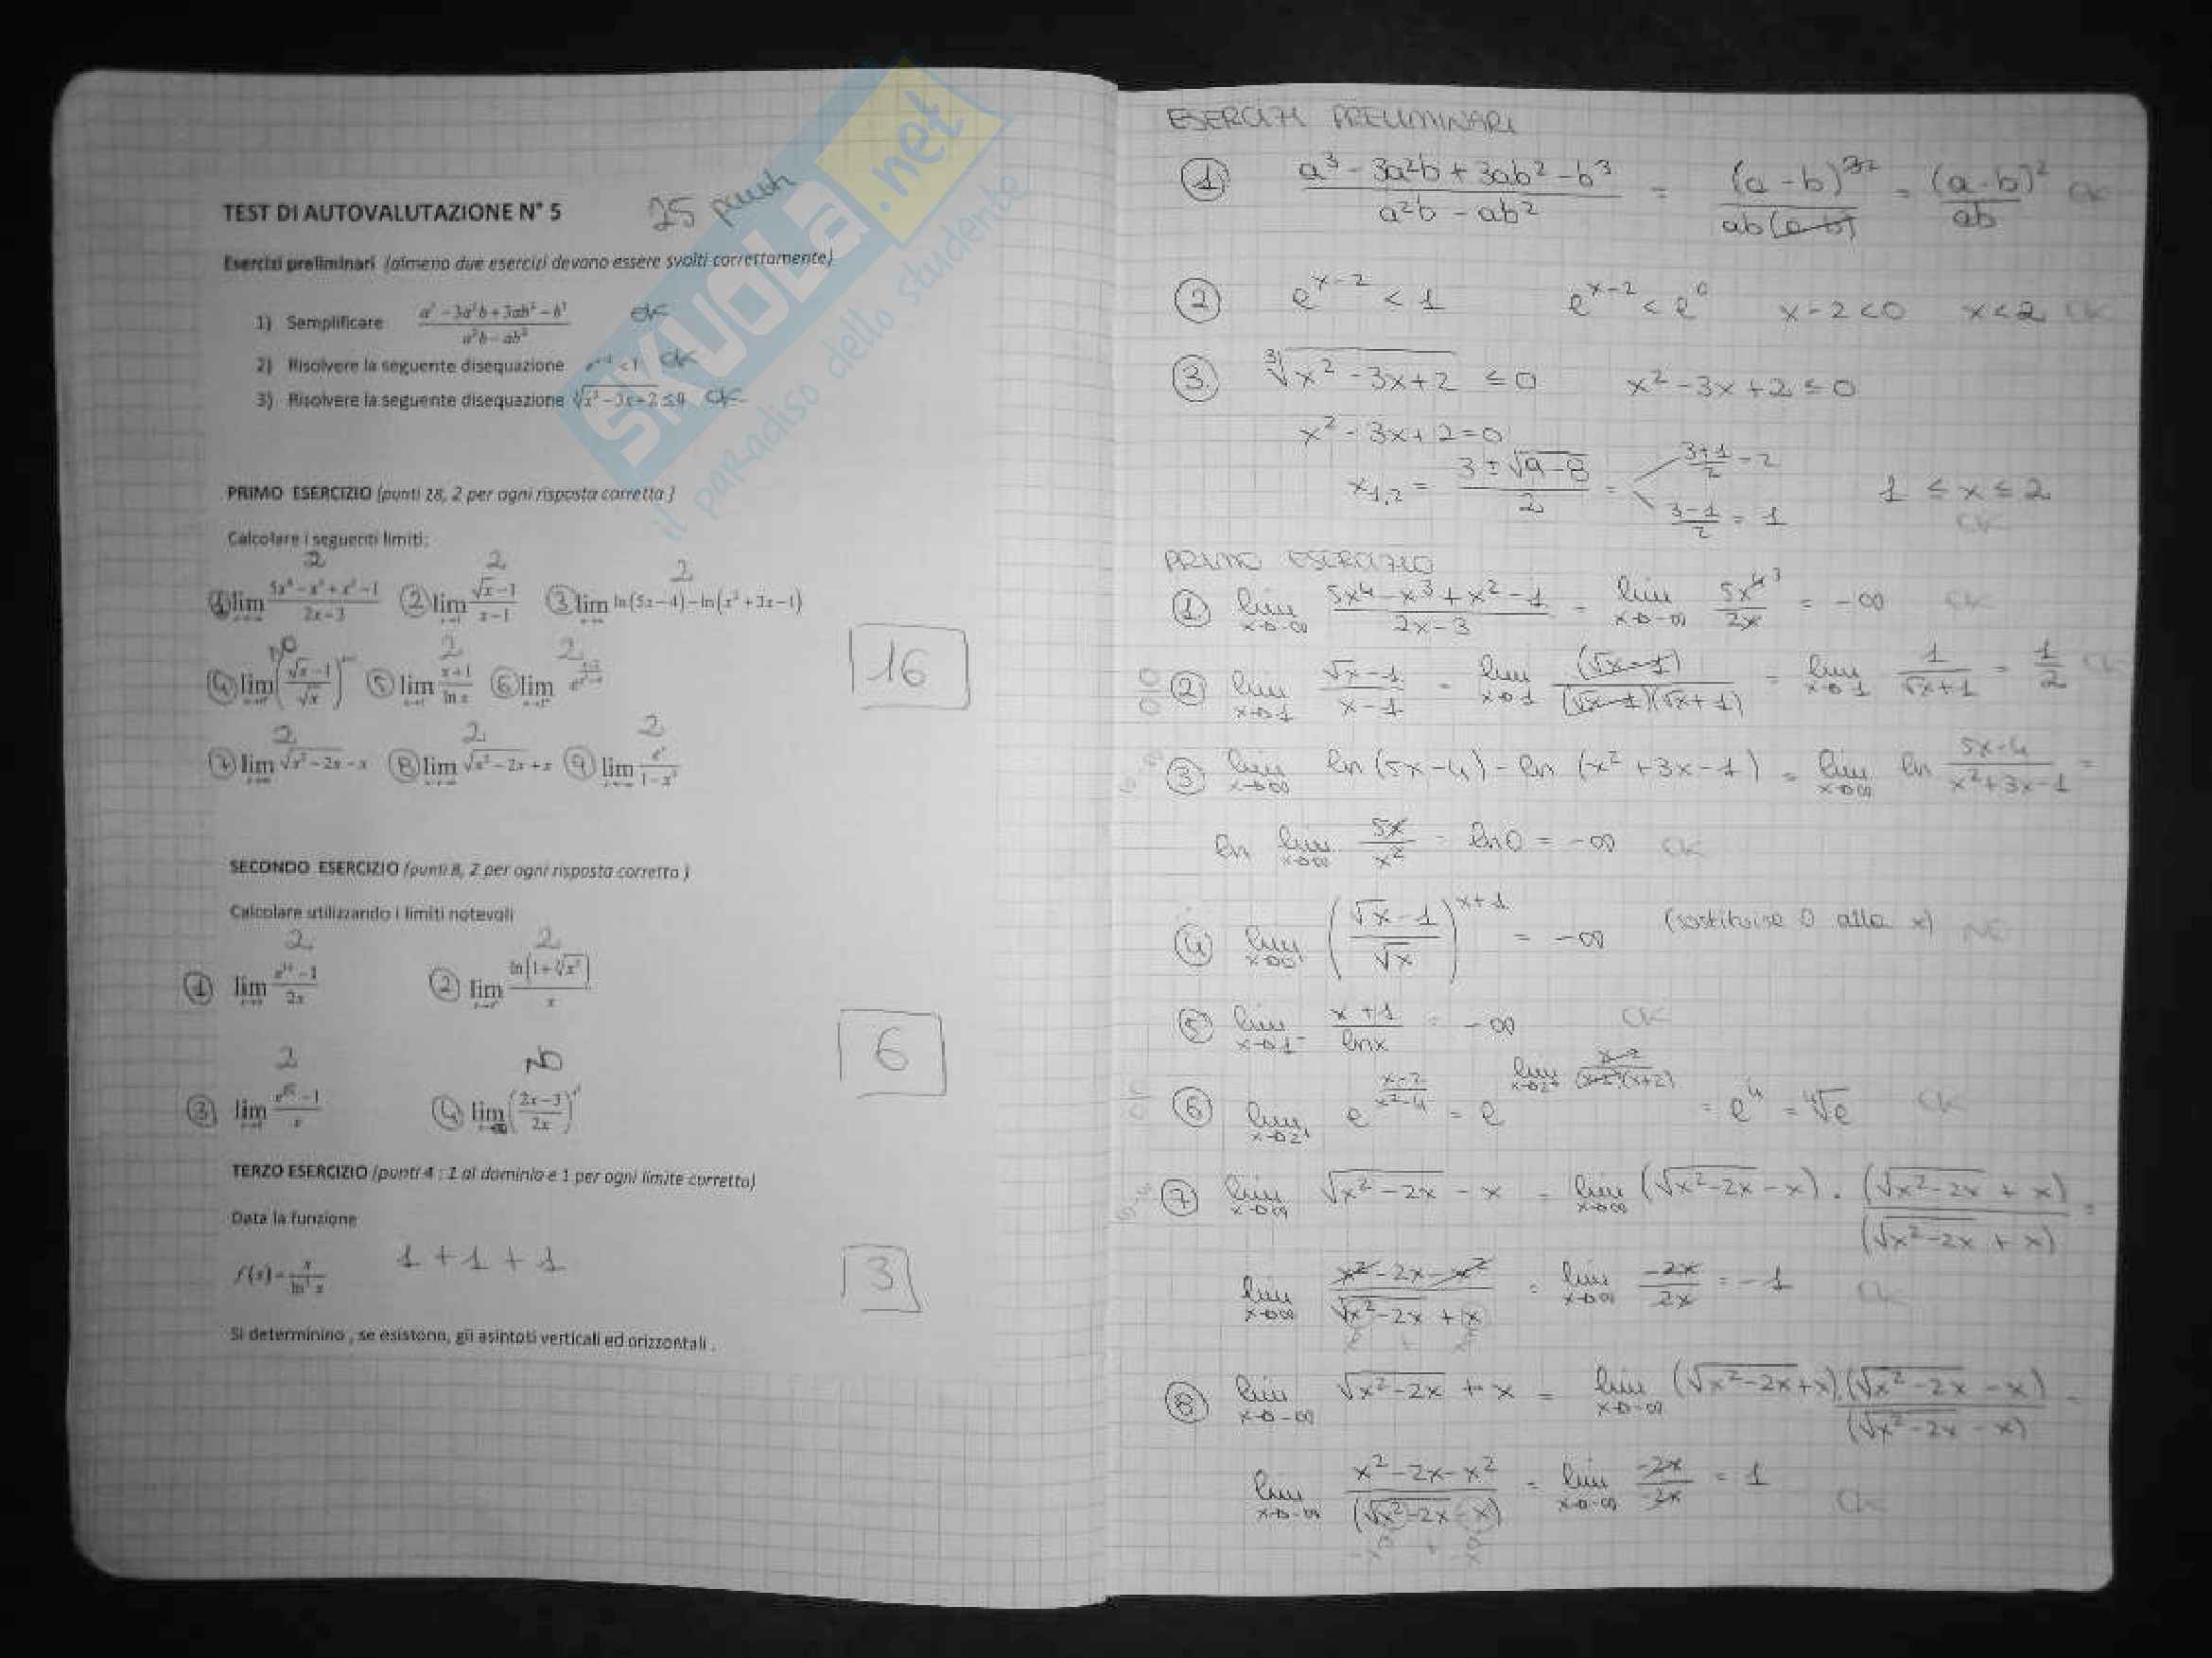 TEST DI AUTOVALUTAZIONE N° 5
25 punti
Esercizi preliminari (almeno due esercizi devono essere svolti correttamente)
1) Semplificare (a³ - 3a²b + 3ab² - b³)/(a²b - ab²) OK
2) Risolvere la seguente disequazione e^(x-2) < 1 OK
3) Risolvere la seguente disequazione ∛(x² - 3x + 2) ≤ 0 OK
PRIMO ESERCIZIO (punti 18, 2 per ogni risposta corretta)
Calcolare i seguenti limiti:
2 2 2
① lim (5x⁴ - x³ + x² - 1)/(2x - 3) ② lim (√x - 1)/(x - 1) ③ lim ln(5x - 4) - ln(x² + 3x - 1)
NO 2 2
④ lim ((√x - 1)/√x)^(x+1) ⑤ lim (x + 1)/ln x ⑥ lim e^((x-2)/(x²-4))
16
2 2 2
⑦ lim √(x² - 2x) - x ⑧ lim √(x² - 2x) + x ⑨ lim
SECONDO ESERCIZIO (punti 8, 2 per ogni risposta corretta)
Calcolare utilizzando i limiti notevoli
2 2
① lim ② lim
2 NO
6
③ lim ④ lim ((2x - 3)/2x)
TERZO ESERCIZIO (punti 4 : 1 al dominio e 1 per ogni limite corretto)
Data la funzione
1 + 1 + 1
3
f(x) =
Si determinino , se esistono, gli asintoti verticali ed orizzontali .
SKUOLA.net
il paradiso dello studente
ESERCIZI PRELIMINARI
① (a³ - 3a²b + 3ab² - b³)/(a²b - ab²) = (a - b)³²/(ab(a-b)) = (a - b)²/ab OK
② e^(x-2) < 1 e^(x-2) < e⁰ x - 2 < 0 x < 2 OK
③ ∛(x² - 3x + 2) ≤ 0 x² - 3x + 2 ≤ 0
x² - 3x + 2 = 0
x₁,₂ = (3 ± √(9 - 8))/2 = (3+1)/2 = 2 (3-1)/2 = 1 1 ≤ x ≤ 2
OK
PRIMO ESERCIZIO
① lim x→-∞ (5x⁴ - x³ + x² - 1)/(2x - 3) = lim x→-∞ 5x⁴³/2x = -∞ OK
0/0 ② lim x→1 (√x - 1)/(x - 1) = lim x→1 (√x - 1)/((√x - 1)(√x + 1)) = lim x→1 1/(√x + 1) = 1/2 OK
③ lim x→∞ ln (5x - 4) - ln (x² + 3x - 1) = lim x→∞ ln (5x - 4)/(x² + 3x - 1) =
ln lim x→∞ 5x/x² = ln 0 = -∞ OK
④ lim ((√x - 1)/√x)^(x+1) = -∞ (sostituisce 0 alla x) NO
⑤ lim x→1⁻ (x + 1)/ln x = -∞ OK
⑥ lim x→2⁺ e^((x-2)/(x²-4)) = e^(lim x→2⁺ (x-2)/((x-2)(x+2))) = e⁴ = ⁴√e OK
⑦ lim x→∞ √(x² - 2x) - x = lim x→∞ (√(x² - 2x) - x) · (√(x² - 2x) + x)/(√(x² - 2x) + x) =
lim x→∞ (x² - 2x - x²)/(√(x² - 2x) + x) = lim x→∞ -2x/2x = -1 OK
⑧ lim x→-∞ √(x² - 2x) + x = lim x→-∞ (√(x² - 2x) + x)(√(x² - 2x) - x)/(√(x² - 2x) - x) =
lim x→-∞ (x² - 2x - x²)/(√(x² - 2x) - x) = lim x→-∞ -2x/-2x = 1 OK